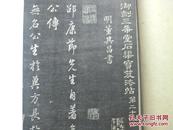 御刻三希堂石渠寶笈法帖第二十
明董其昌書
邵康節先生自著
公傳
無名公生於冀方長於